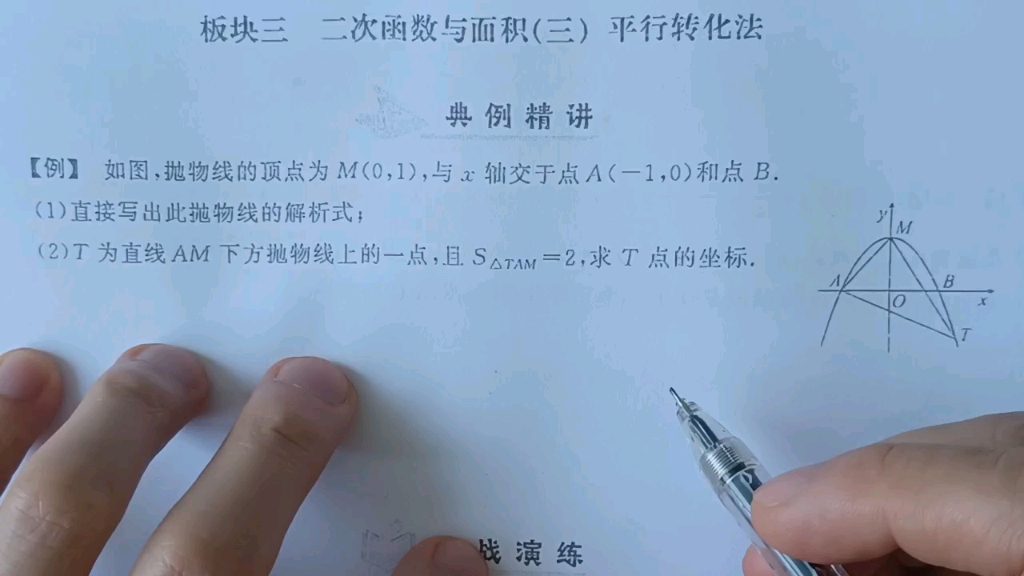 板块三 二次函数与面积(三) 平行转化法
典例精讲
【例】 如图,抛物线的顶点为 M(0,1),与 x 轴交于点 A(-1,0)和点 B.
(1)直接写出此抛物线的解析式;
(2)T 为直线 AM 下方抛物线上的一点,且 S△TAM=2,求 T 点的坐标.
y
M
A
B
O
x
T
战演练